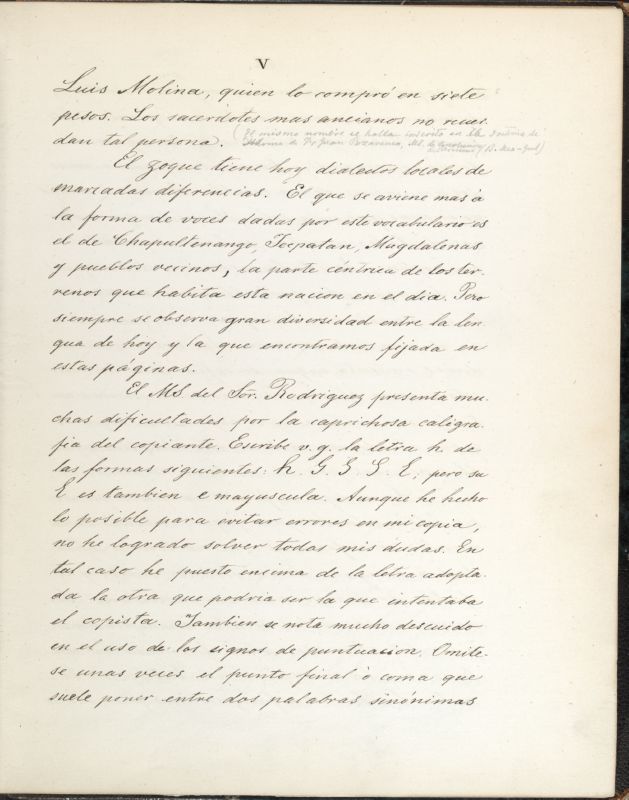 V
Luis Molina, quien lo compró en siete
pesos. Los sacerdotes mas ancianos no recuer-
dan tal persona. (El mismo nombre se halla inscrito en la
de Fr. Juan Pozarenco, MS.
El zoque tiene hoy dialectos locales de
marcadas diferencias. El que se aviene mas á
la forma de voces dadas por este vocabulario es
el de Chapultenango, Tecpatan, Magdalenas
y pueblos vecinos, la parte céntrica de los ter-
renos que habita esta nacion en el dia. Pero
siempre se observa gran diversidad entre la len
gua de hoy y la que encontramos fijada en
estas páginas.
El MS. del Sor. Rodriguez presenta mu-
chas dificultades por la caprichosa caligra-
fia del copiante. Escribe v. g. la letra h. de
las formas siguientes: h. G. S. S. E; pero su
E es tambien e mayuscula. Aunque he hecho
lo posible para evitar errores en mi copia,
no he logrado solver todas mis dudas. En
tal caso he puesto encima de la letra adopta-
da la otra que podria ser la que intentaba
el copista. Tambien se nota mucho descuido
en el uso de los signos de puntuacion. Omite-
se unas veces el punto final ò coma que
suele poner entre dos palabras sinónimas